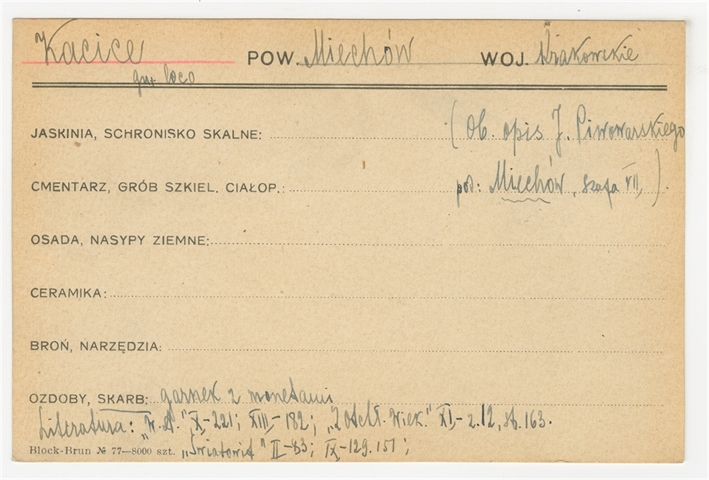 Kacice POW. Miechów WOJ. Krakowskie
gm. loco
JASKINIA, SCHRONISKO SKALNE: (Ob. opis J. Piwowarskiego
CMENTARZ, GRÓB SZKIEL. CIAŁOP.: pod: Miechów, szafa VII,).
OSADA, NASYPY ZIEMNE:
CERAMIKA:
BROŃ, NARZĘDZIA:
OZDOBY, SKARB: garnek z monetami
Literatura: "W. A." X-221; XIII-182; "Z otchł. Wiek." XI,-z.12, st. 163.
Block-Brun № 77—8000 szt. "Światowit" II-83; IX-129.151;